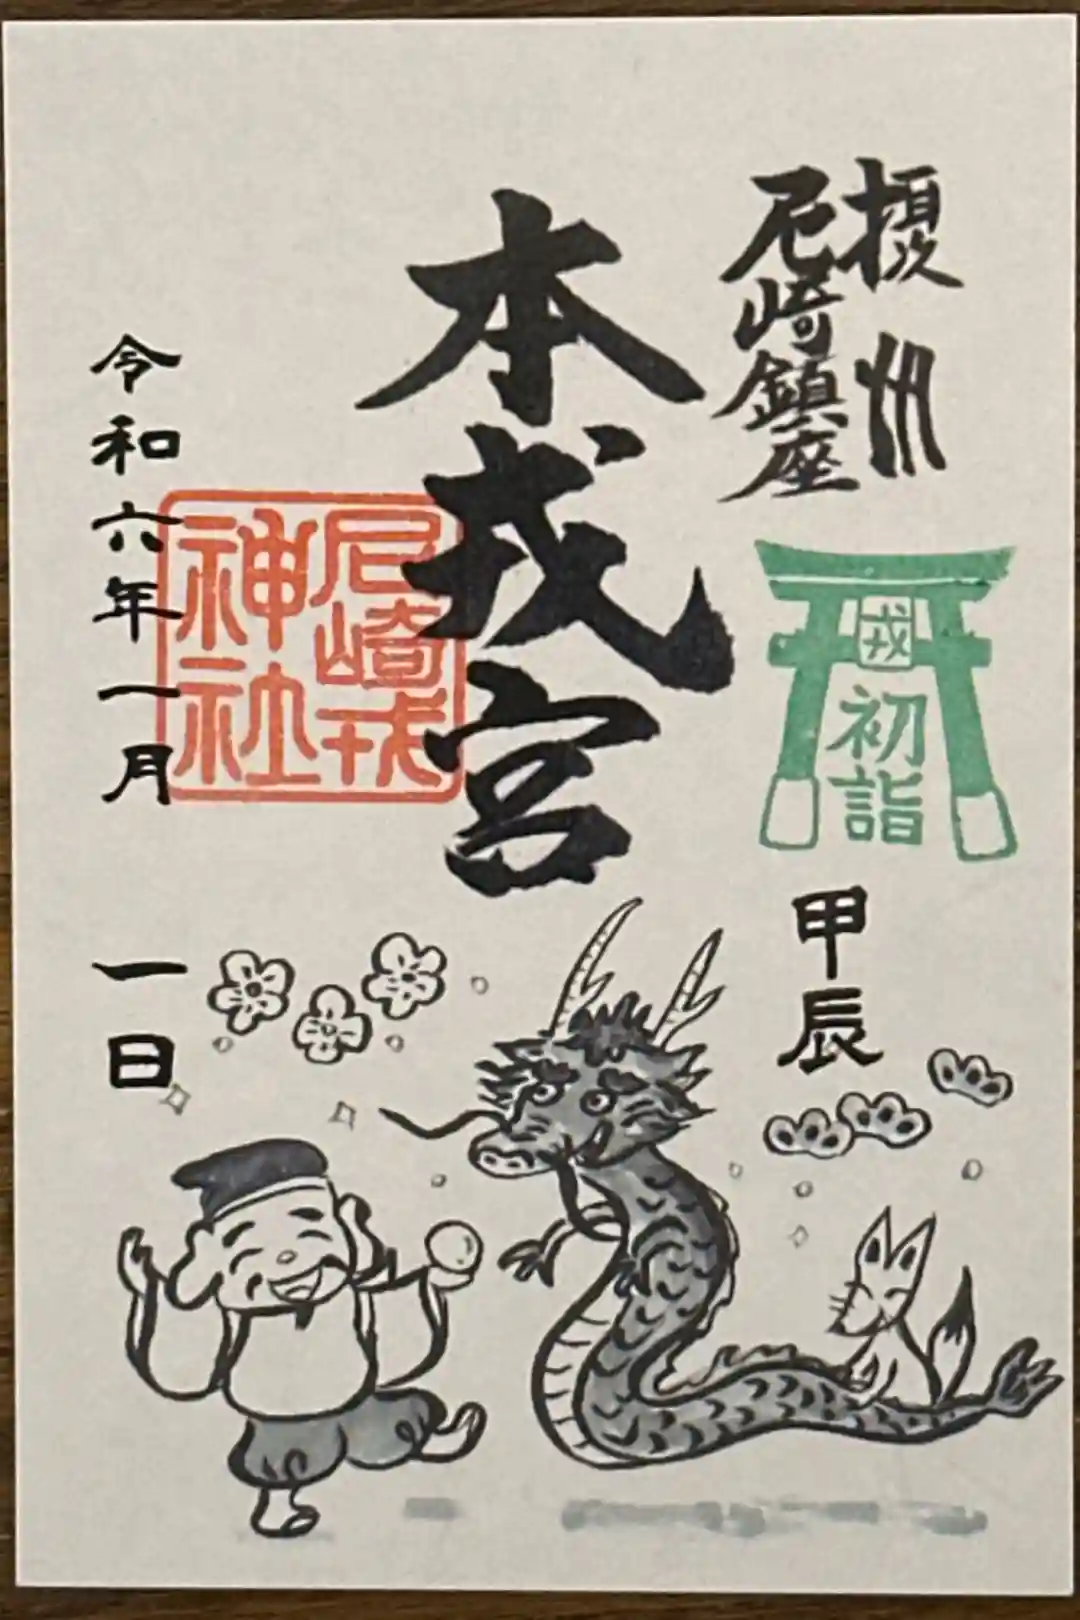 摂州
尼崎鎮座
戎
初詣
甲辰
本戎宮
尼崎戎
神社
令和六年一月一日